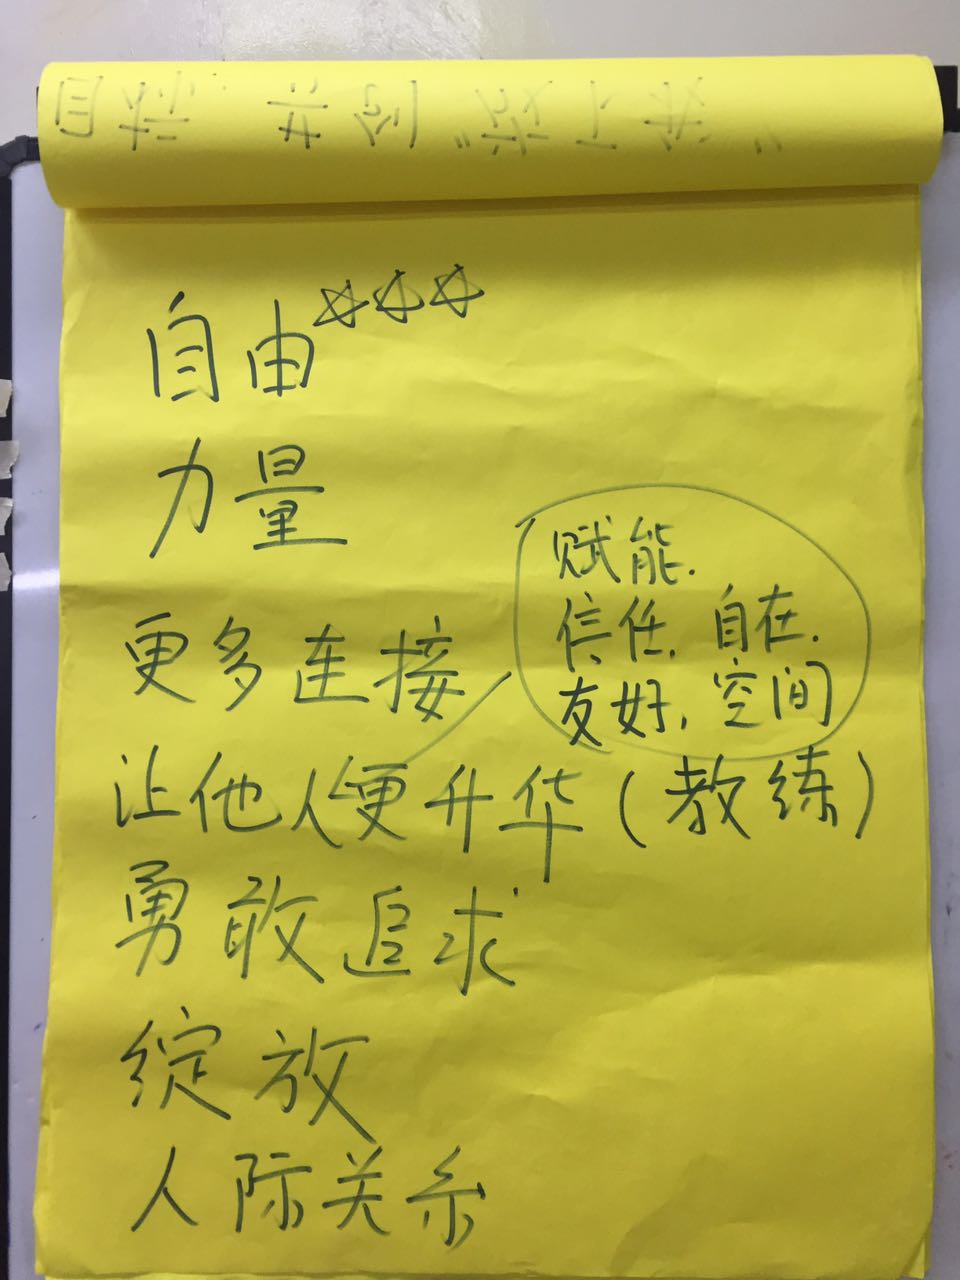 自由☆☆☆
力量
更多连接
赋能.
信任. 自在.
友好, 空间
让他人更升华(教练)
勇敢追求
绽放
人际关系